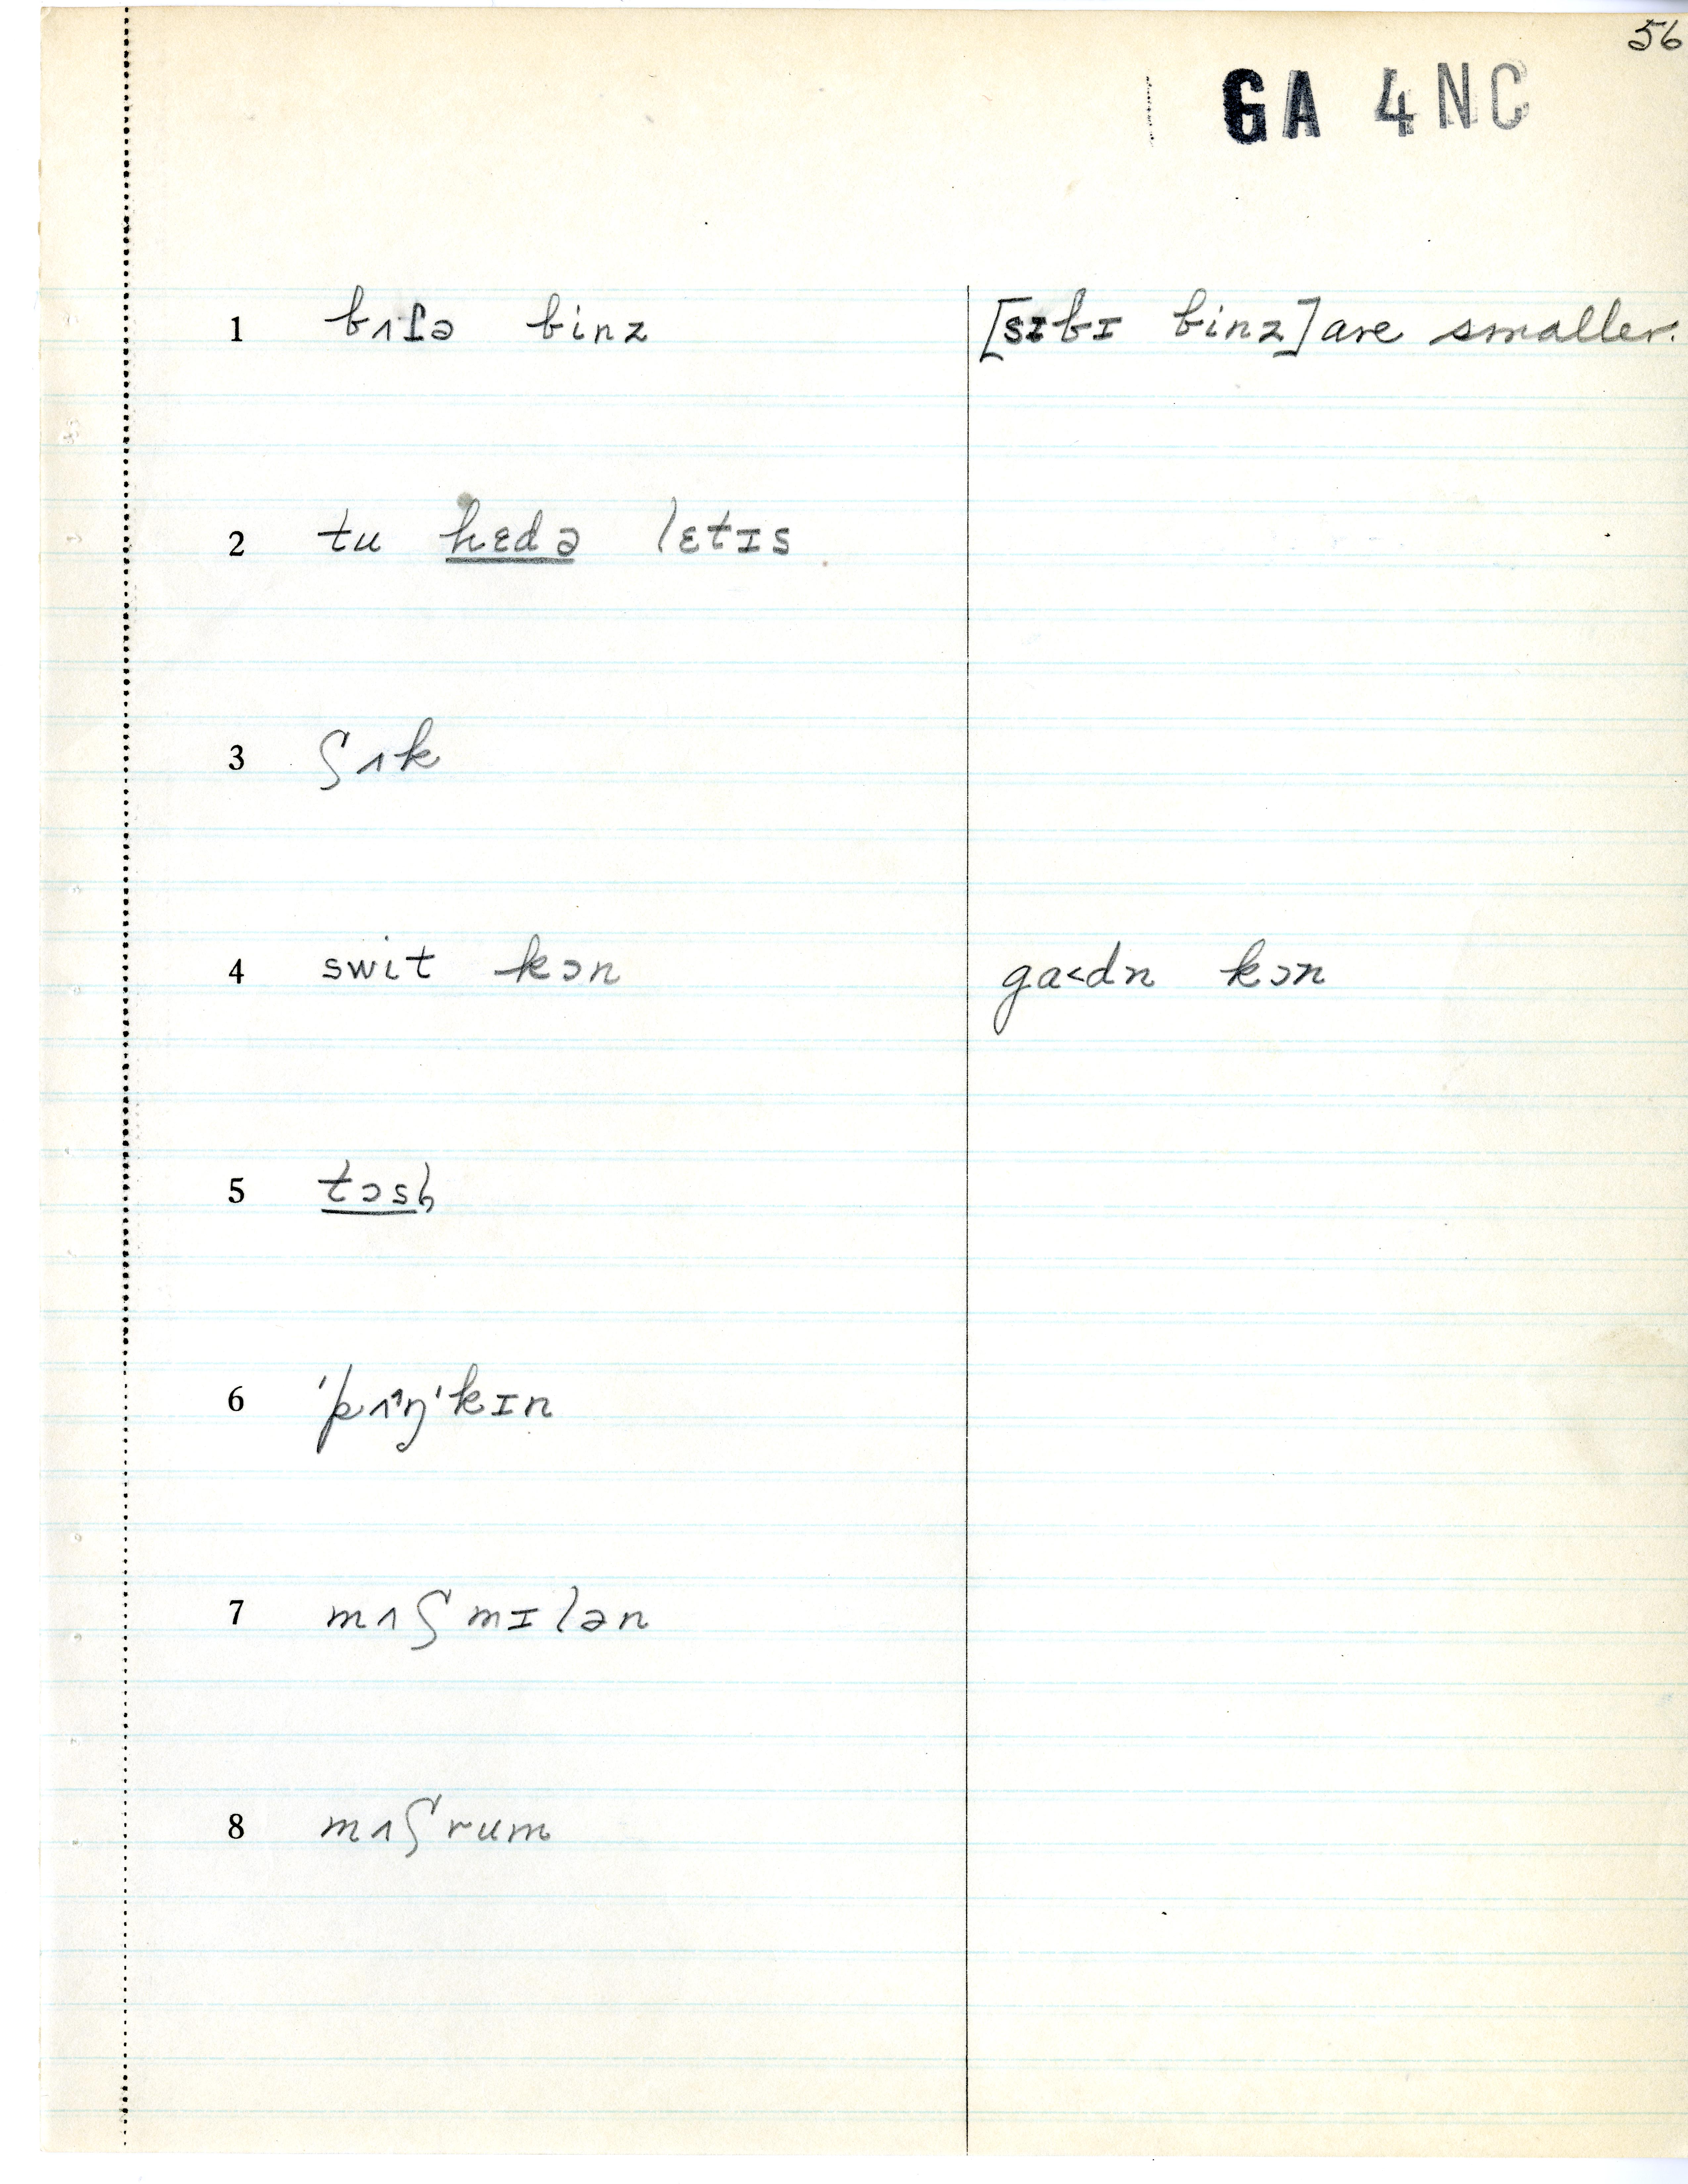 56
GA 4NC
1 bʌſə binz [sɪbɪ binz] are smaller.
2 tu hɛdə lɛtɪs
3 ʃʌk
4 swit kɔn ga<dn kɔn
5 tɔsḥ
6 'pʌ^ŋ'kɪn
7 mʌʃmɪlən
8 mʌʃrum